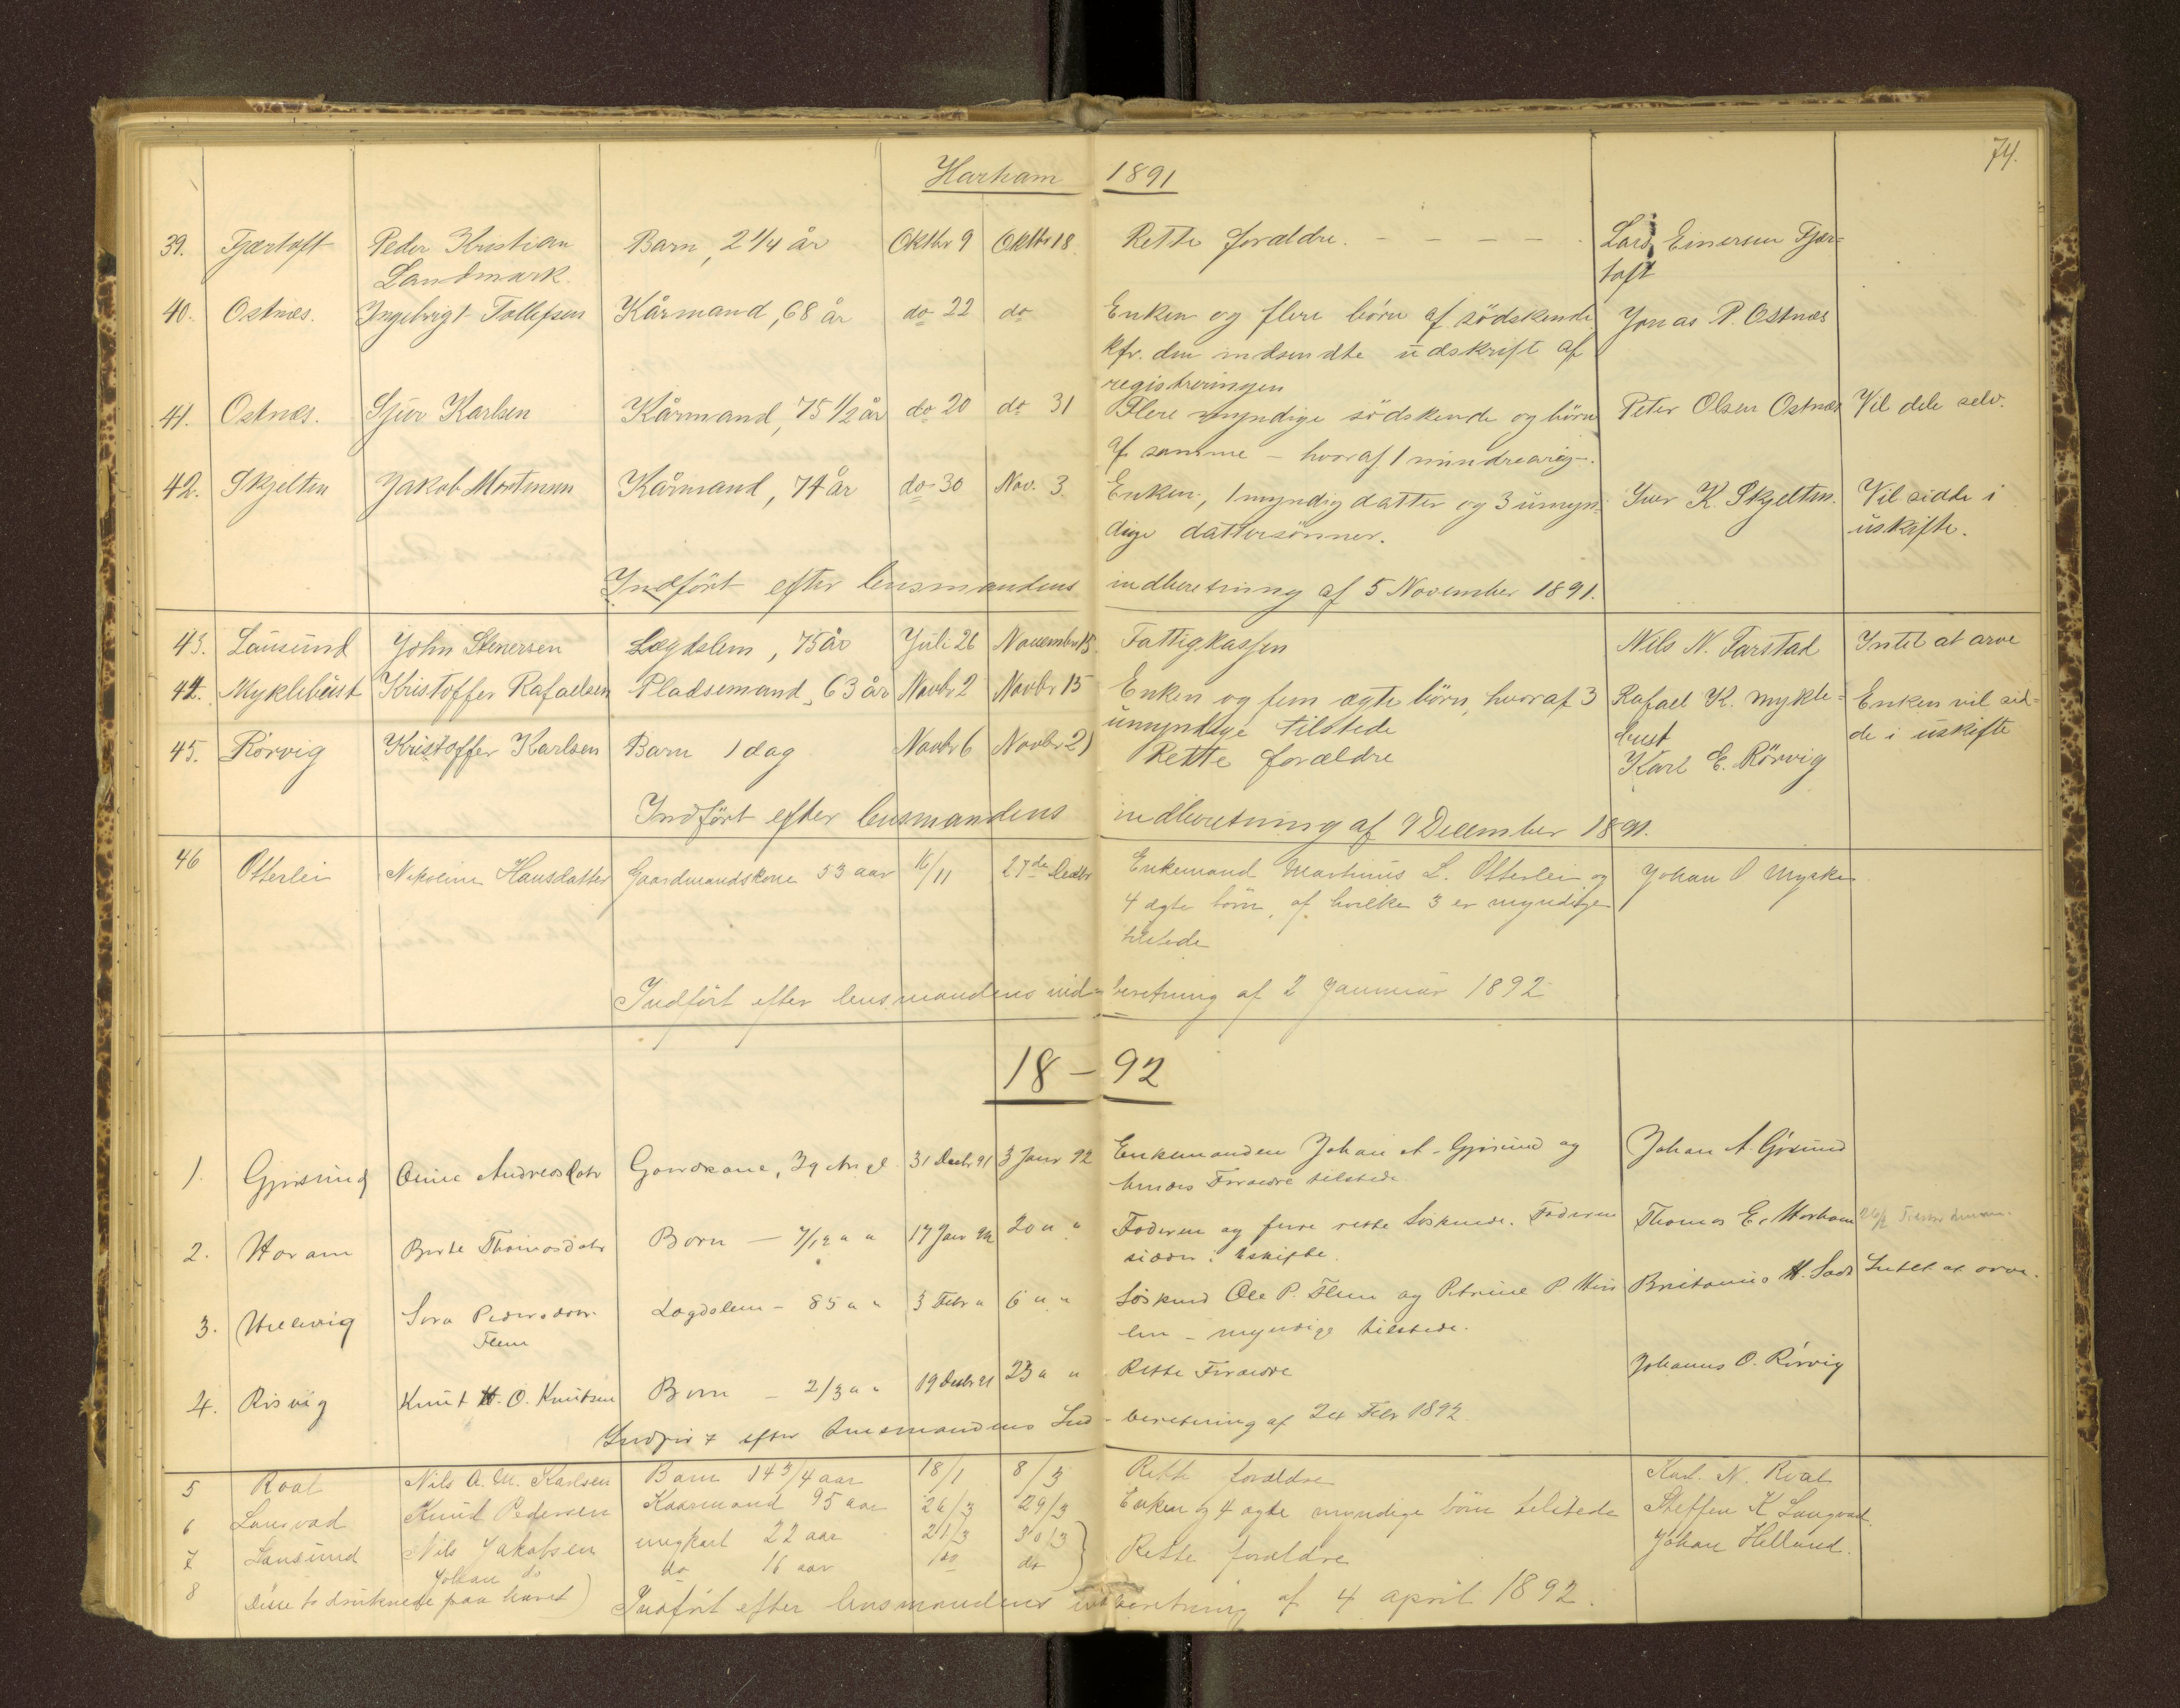 74.
Harham 1891
39. Fjærtoft Peder Kristian Barn, 2 1/4 år Oktbr 9 Oktbr 18 Rette forældre. - - - - Lars Einersen Fjær-
Landmark. toft
40. Ostnæs. Ingebrigt Tollefsen Kårmand, 68 år do 22 do Enken og flere börn af södskende Jonas P. Ostnæs
kfr. den indsendte udskrift af
registreringen
41. Ostnæs. Sjur Karlsen Kårmand, 75 1/2 år do 20 do 31 Flere myndige södskende og börn Peter Olsen Ostnæs Vil dele selv.
af samme - hvoraf 1 mindreårig -.
42. Skjelten Jakob Mortensen Kårmand, 74 år do 30 Nov. 3. Enken, 1 myndig datter og 3 umyn- Iver K. Skjelten. Vil sidde i
dige dattersönner. uskifte.
Indfört efter lensmandens indberetning af 5 November 1891.
43. Lausund John Stenersen Lægdslem, 75 år Juli 26 November 15. Fattigkassen Nils N. Farstad Intet at arve
44. Myklebust Kristoffer Rafaelsen Pladsemand, 63 år Novbr 2 Novbr 15 Enken og fem ægte börn, hvoraf 3 Rafael K. Mykle- Enken vil sid-
umyndige tilstede bust de i uskifte
45. Rörvig Kristoffer Karlsen Barn 1 dag Novbr 6 Novbr 21 Rette forældre Karl E. Rörvig
Indfört efter lensmandens indberetning af 9 December 1891.
46 Otterlei Nikoline Hansdatter Gaardmandskone 53 aar 16/11 27de Decbr Enkemand Martinus L. Otterlei og Johan O Myske
4 ægte börn, af hvilke 3 er myndige
tilstede
Indfört efter lensmandens ind- beretning af 2 Januar 1892
18 - 92
1. Gjøsund Andreasdatr 31 Decbr 91 3 Janr 92 Enkemanden Johan A. Gjøsund og Johan A. Gjøsund
hendes Forædre tilstede.
2. Haram Berte Thomasdatr Barn - 7/12 " " 17 Janr 92 20 " " Faderen og fire rette Søskende. Faderen Thomas E. Harham
sidder i Uskifte.
3. Hellevig Sera Pedersdatr Lægdslem - 85 " " 3 Febr " 6 " " Søskend Ole P. Flem og Petrine P. H. Intet at arve.
Flem myndige tilstede.
4. Risvig Knut O. Knutsen Barn - 2/3 " " 19 Decbr 91 23 " " Rette Forædre Johannes O. Rörvig
Indført efter Lensmandens Ind- beretning af 24 Febr 1892.
5 Roal Nils A. M. Karlsen Barn 14 3/4 aar 18/1 8/3 Rette forældre Karl. N. Roal
6 Longvad Knut Pedersen Kaarmand 95 aar 26/3 29/3 Enken og 4 ægte myndige börn tilstede Steffen K Longvad.
7 Lausund Nils Jakobsen ungkarl 22 aar 21/3 30/3 Rette forældre Johan Helland.
8 Johan do do 16 aar do do
(Disse to druknede paa havet) Indfört efter lensmandens indberetning af 4 april 1892.